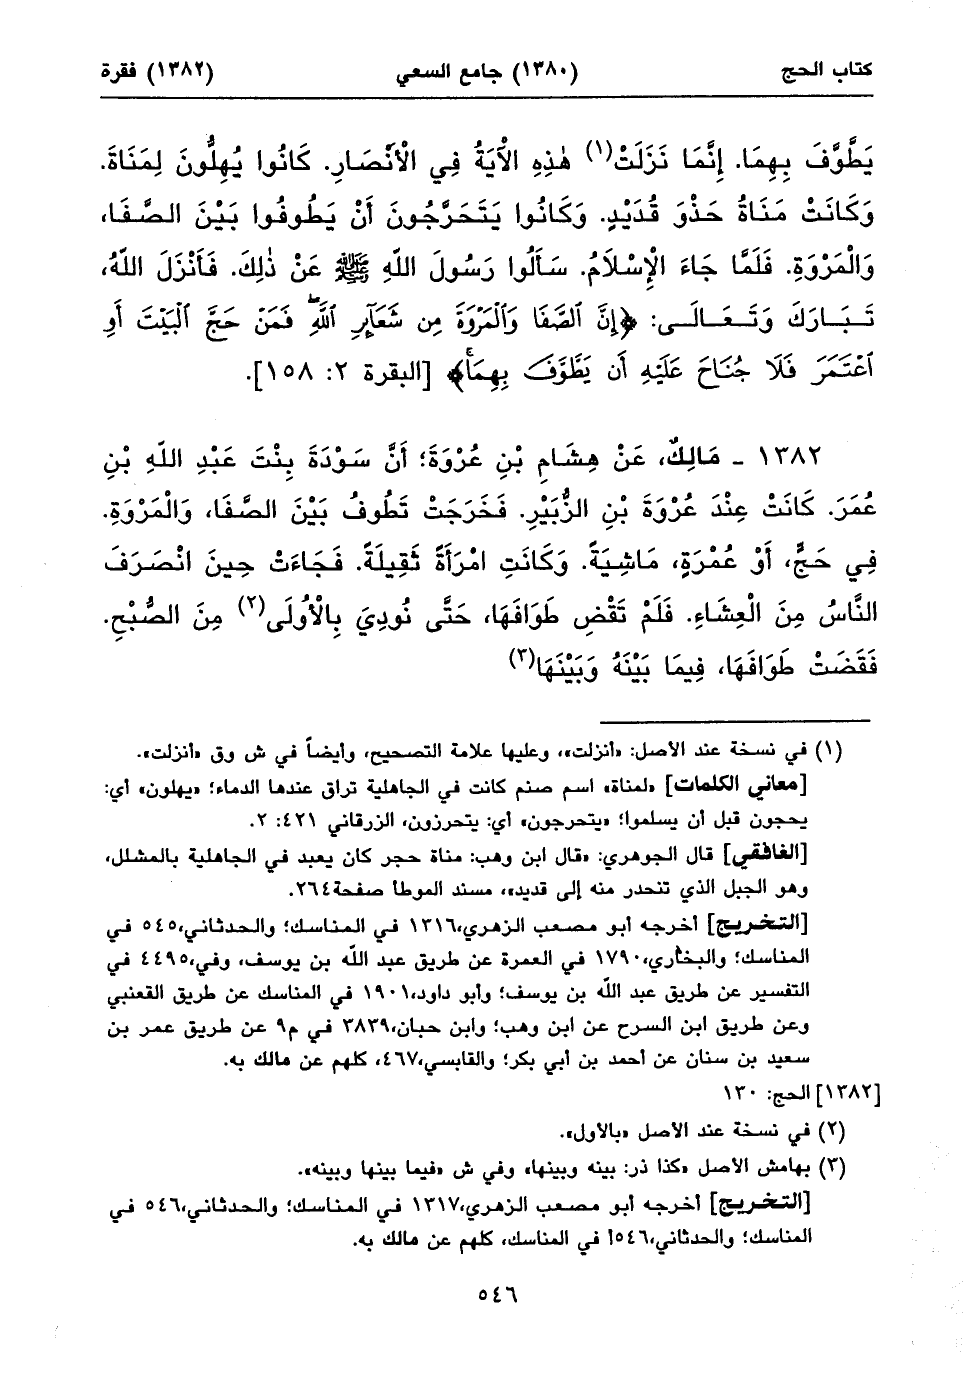 كتاب الحج (١٣٨٠) جامع السعي (١٣٨٢) فقرة
يَطَّوَّفَ بِهِمَا. إِنَّمَا نَزَلَتْ(١) هٰذِهِ الْآيَةُ فِي الْأَنْصَارِ. كَانُوا يُهِلُّونَ لِمَنَاةَ.
وَكَانَتْ مَنَاةُ حَذْوَ قُدَيْدٍ. وَكَانُوا يَتَحَرَّجُونَ أَنْ يَطُوفُوا بَيْنَ الصَّفَا،
وَالْمَرْوَةِ. فَلَمَّا جَاءَ الْإِسْلَامُ. سَأَلُوا رَسُولَ اللهِ ﷺ عَنْ ذٰلِكَ. فَأَنْزَلَ اللهُ،
تَبَارَكَ وَتَعَالَى: ﴿إِنَّ ٱلصَّفَا وَٱلْمَرْوَةَ مِن شَعَآئِرِ ٱللَّهِۖ فَمَنْ حَجَّ ٱلْبَيْتَ أَوِ
ٱعْتَمَرَ فَلَا جُنَاحَ عَلَيْهِ أَن يَطَّوَّفَ بِهِمَاۚ﴾ [البقرة ٢: ١٥٨].
١٣٨٢ - مَالِكٌ، عَنْ هِشَامِ بْنِ عُرْوَةَ؛ أَنَّ سَوْدَةَ بِنْتَ عَبْدِ اللهِ بْنِ
عُمَرَ. كَانَتْ عِنْدَ عُرْوَةَ بْنِ الزُّبَيْرِ. فَخَرَجَتْ تَطُوفُ بَيْنَ الصَّفَا، وَالْمَرْوَةِ.
فِي حَجٍّ، أَوْ عُمْرَةٍ، مَاشِيَةً. وَكَانَتِ امْرَأَةً ثَقِيلَةً. فَجَاءَتْ حِينَ انْصَرَفَ
النَّاسُ مِنَ الْعِشَاءِ. فَلَمْ تَقْضِ طَوَافَهَا، حَتَّى نُودِيَ بِالْأُولَى(٢) مِنَ الصُّبْحِ.
فَقَضَتْ طَوَافَهَا، فِيمَا بَيْنَهُ وَبَيْنَهَا(٣)
(١) في نسخة عند الأصل: «أنزلت»، وعليها علامة التصحيح، وأيضاً في ش وق «أنزلت».
[معاني الكلمات] «لمناة» اسم صنم كانت في الجاهلية تراق عندها الدماء؛ «يهلون» أي:
يحجون قبل أن يسلموا؛ «يتحرجون» أي: يتحرزون، الزرقاني ٤٢١: ٢.
[الغافقي] قال الجوهري: «قال ابن وهب: مناة حجر كان يعبد في الجاهلية بالمشلل،
وهو الجبل الذي تنحدر منه إلى قديد»، مسند الموطأ صفحة٢٦٤.
[التخريج] أخرجه أبو مصعب الزهري،١٣١٦ في المناسك؛ والحدثاني،٥٤٥ في
المناسك؛ والبخاري،١٧٩٠ في العمرة عن طريق عبد الله بن يوسف، وفي،٤٤٩٥ في
التفسير عن طريق عبد الله بن يوسف؛ وأبو داود،١٩٠١ في المناسك عن طريق القعنبي
وعن طريق ابن السرح عن ابن وهب؛ وابن حبان،٣٨٣٩ في م٩ عن طريق عمر بن
سعيد بن سنان عن أحمد بن أبي بكر؛ والقابسي،٤٦٧، كلهم عن مالك به.
[١٣٨٢] الحج: ١٣٠
(٢) في نسخة عند الأصل «بالأول».
(٣) بهامش الأصل «كذا ذر: بينه وبينها» وفي ش «فيما بينها وبينه».
[التخريج] أخرجه أبو مصعب الزهري،١٣١٧ في المناسك؛ والحدثاني،٥٤٦ في
المناسك؛ والحدثاني،٥٤٦أ في المناسك، كلهم عن مالك به.
٥٤٦